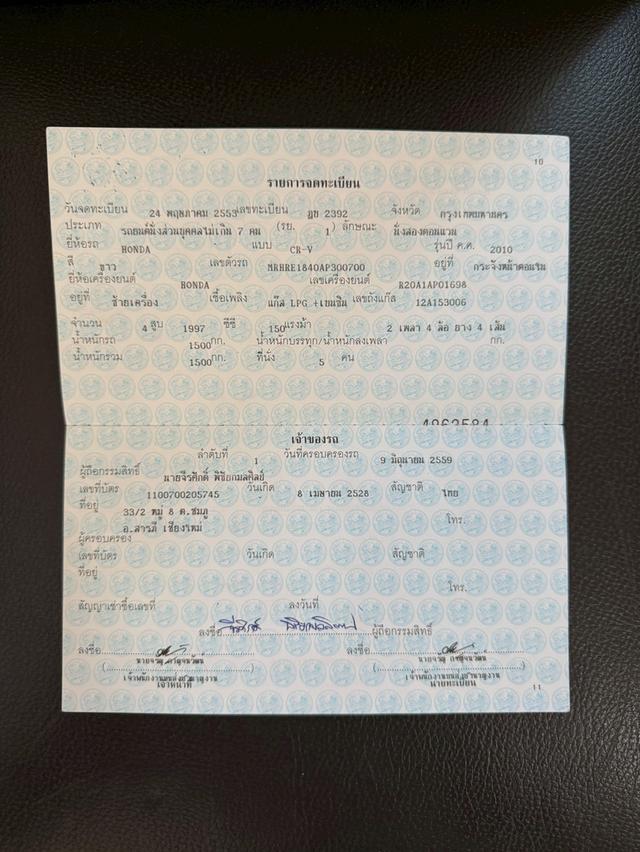 10
รายการจดทะเบียน
วันจดทะเบียน 24 พฤษภาคม 2553 เลขทะเบียน ฎข 2392 จังหวัด กรุงเทพมหานคร
ประเภท รถยนต์นั่งส่วนบุคคลไม่เกิน 7 คน (รย. 1) ลักษณะ นั่งสองตอนแวน
ยี่ห้อรถ HONDA แบบ CR-V รุ่นปี ค.ศ. 2010
สี ขาว เลขตัวรถ MRHRE1840AP300700 อยู่ที่ กระจังหน้าตอนริม
ยี่ห้อเครื่องยนต์ HONDA เลขเครื่องยนต์ R20A1AP01698
อยู่ที่ ซ้ายเครื่อง เชื้อเพลิง แก๊ส LPG +เบนซิน เลขถังแก๊ส 12A153006
จำนวน 4 สูบ 1997 ซีซี 150 แรงม้า 2 เพลา 4 ล้อ ยาง 4 เส้น
น้ำหนักรถ 1500 กก. น้ำหนักบรรทุก/น้ำหนักลงเพลา กก.
น้ำหนักรวม 1500 กก. ที่นั่ง 5 คน
เจ้าของรถ
ลำดับที่ 1 วันที่ครอบครองรถ 9 มิถุนายน 2559
ผู้ถือกรรมสิทธิ์ นายจีรศักดิ์ พิชัยกมลศิลย์
เลขที่บัตร 1100700205745 วันเกิด 8 เมษายน 2528 สัญชาติ ไทย
ที่อยู่ 33/2 หมู่ 8 ต.ชมภู โทร.
อ.สารภี เชียงใหม่
ผู้ครอบครอง
เลขที่บัตร วันเกิด สัญชาติ
ที่อยู่
โทร.
สัญญาเช่าซื้อเลขที่ ลงวันที่
ลงชื่อ ผู้ถือกรรมสิทธิ์
ลงชื่อ ลงชื่อ
เจ้าพนักงานขนส่งชำนาญงาน เจ้าพนักงานขนส่งชำนาญงาน
เจ้าหน้าที่ นายทะเบียน
11